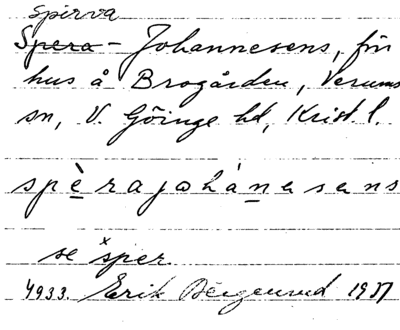 spirva
Spera - Johannesens, för
hus å Brogården, Verums
sn, V. Göinge hd, Krist. l.
spèrajohánesens
se ˣsper
4933. Erik 1937